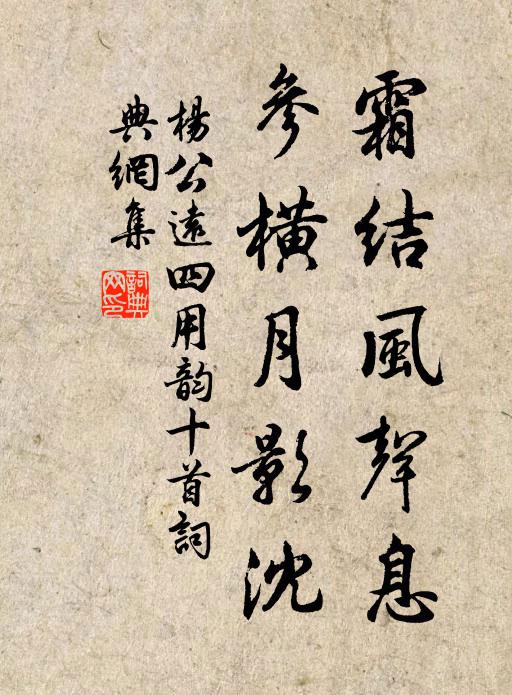 霜結風聲息
參橫月影沈
楊公遠四用韵十首詞
典網集
詞典
网印